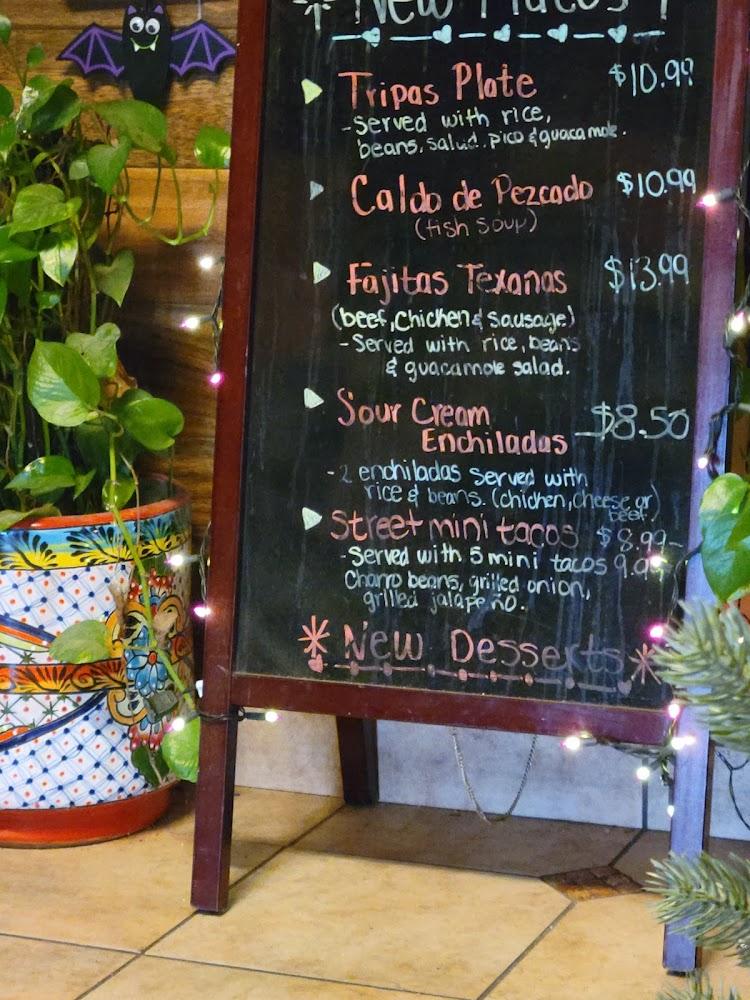 New Platos!
Tripas Plate $10.99
- Served with rice,
beans, salad, pico & guacamole.
Caldo de Pezcado $10.99
(fish soup)
Fajitas Texanas $13.99
(beef, Chicken & sausage)
- Served with rice, beans
& guacamole salad.
Sour Cream
Enchiladas $8.50
- 2 enchiladas served with
rice & beans. (chicken, cheese or
beef)
Street mini tacos $8.99-
- Served with 5 mini tacos 9.99
Charro beans, grilled onion,
grilled jalapeño.
New Desserts